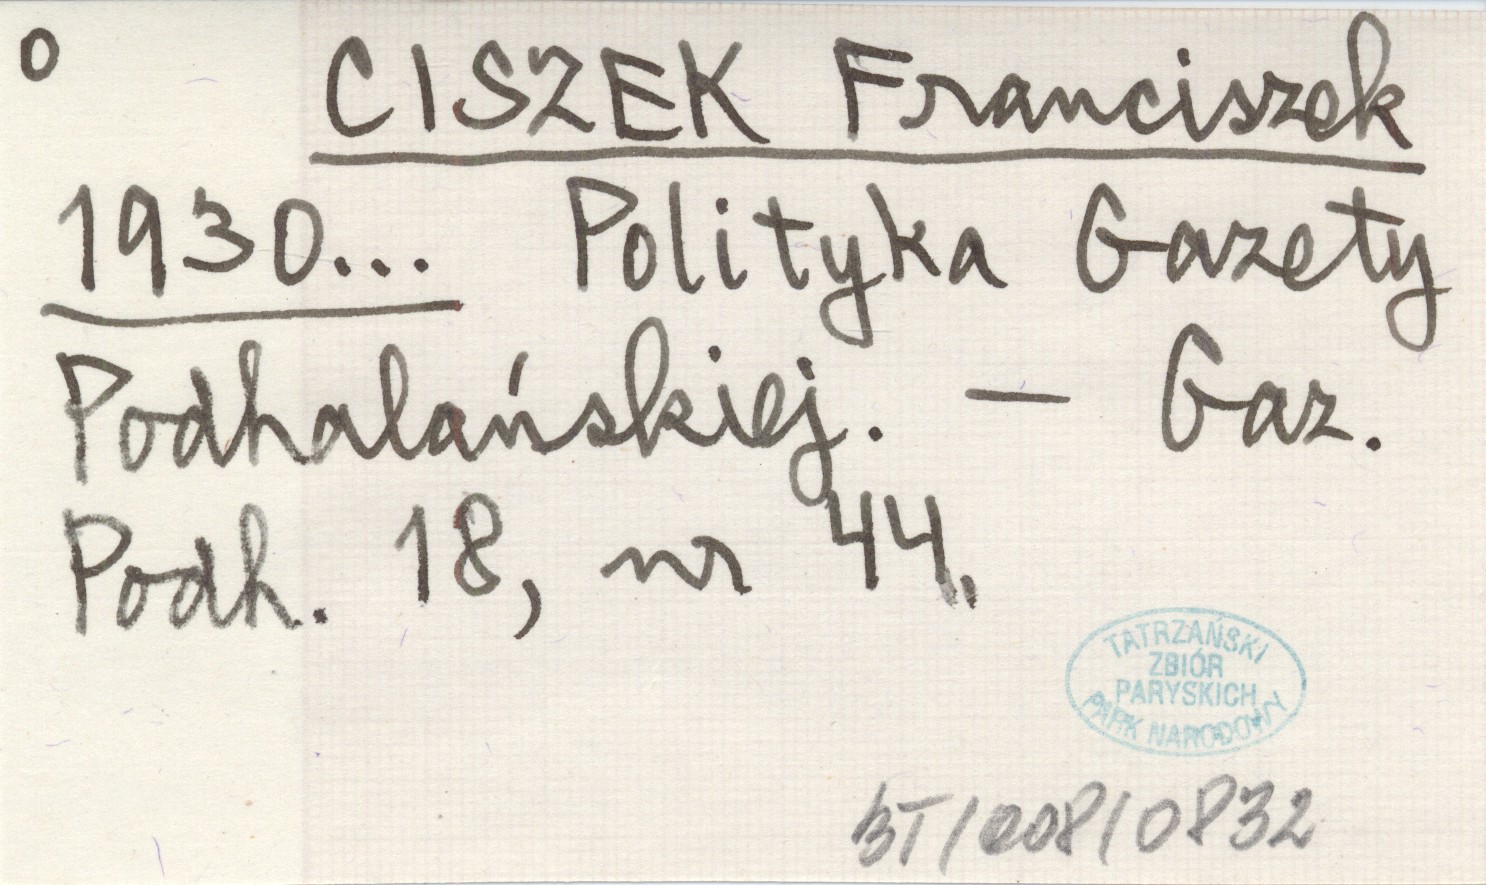 o CISZEK Franciszek
1930... Polityka Gazety
Podhalańskiej. — Gaz.
Podh. 18, nr 44.
TATRZAŃSKI
ZBIÓR
PARYSKICH
PARK NARODOWY
BT/008/0832